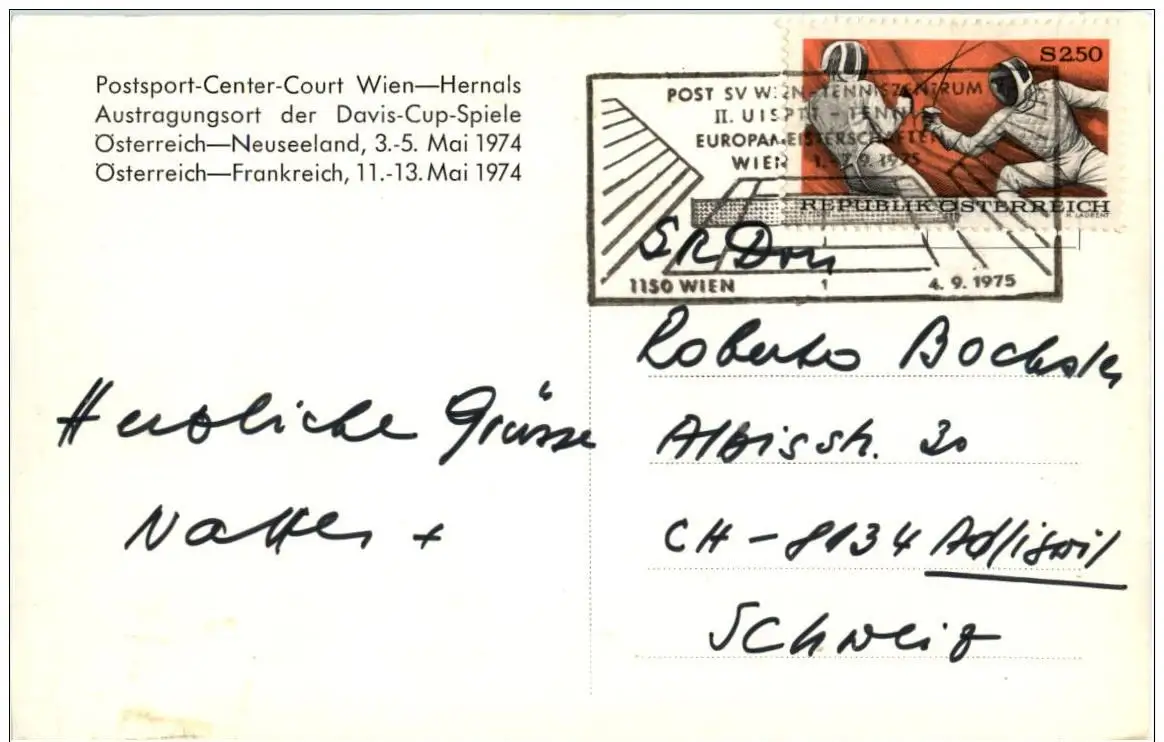 Postsport-Center-Court Wien—Hernals
Austragungsort der Davis-Cup-Spiele
Österreich—Neuseeland, 3.-5. Mai 1974
Österreich—Frankreich, 11.-13. Mai 1974
S2.50
REPUBLIK ÖSTERREICH
R. LAURENT
POST SV WIEN-TENNISZENTRUM
II. UISPTT - TENNIS
EUROPAMEISTERSCHAFTEN
WIEN 1.-7.9.1975
1150 WIEN 1 4.9.1975
Herzliche Grüsse
+
Roberto Bochsler
Albisstr. 30
CH-8134 Adliswil
Schweiz